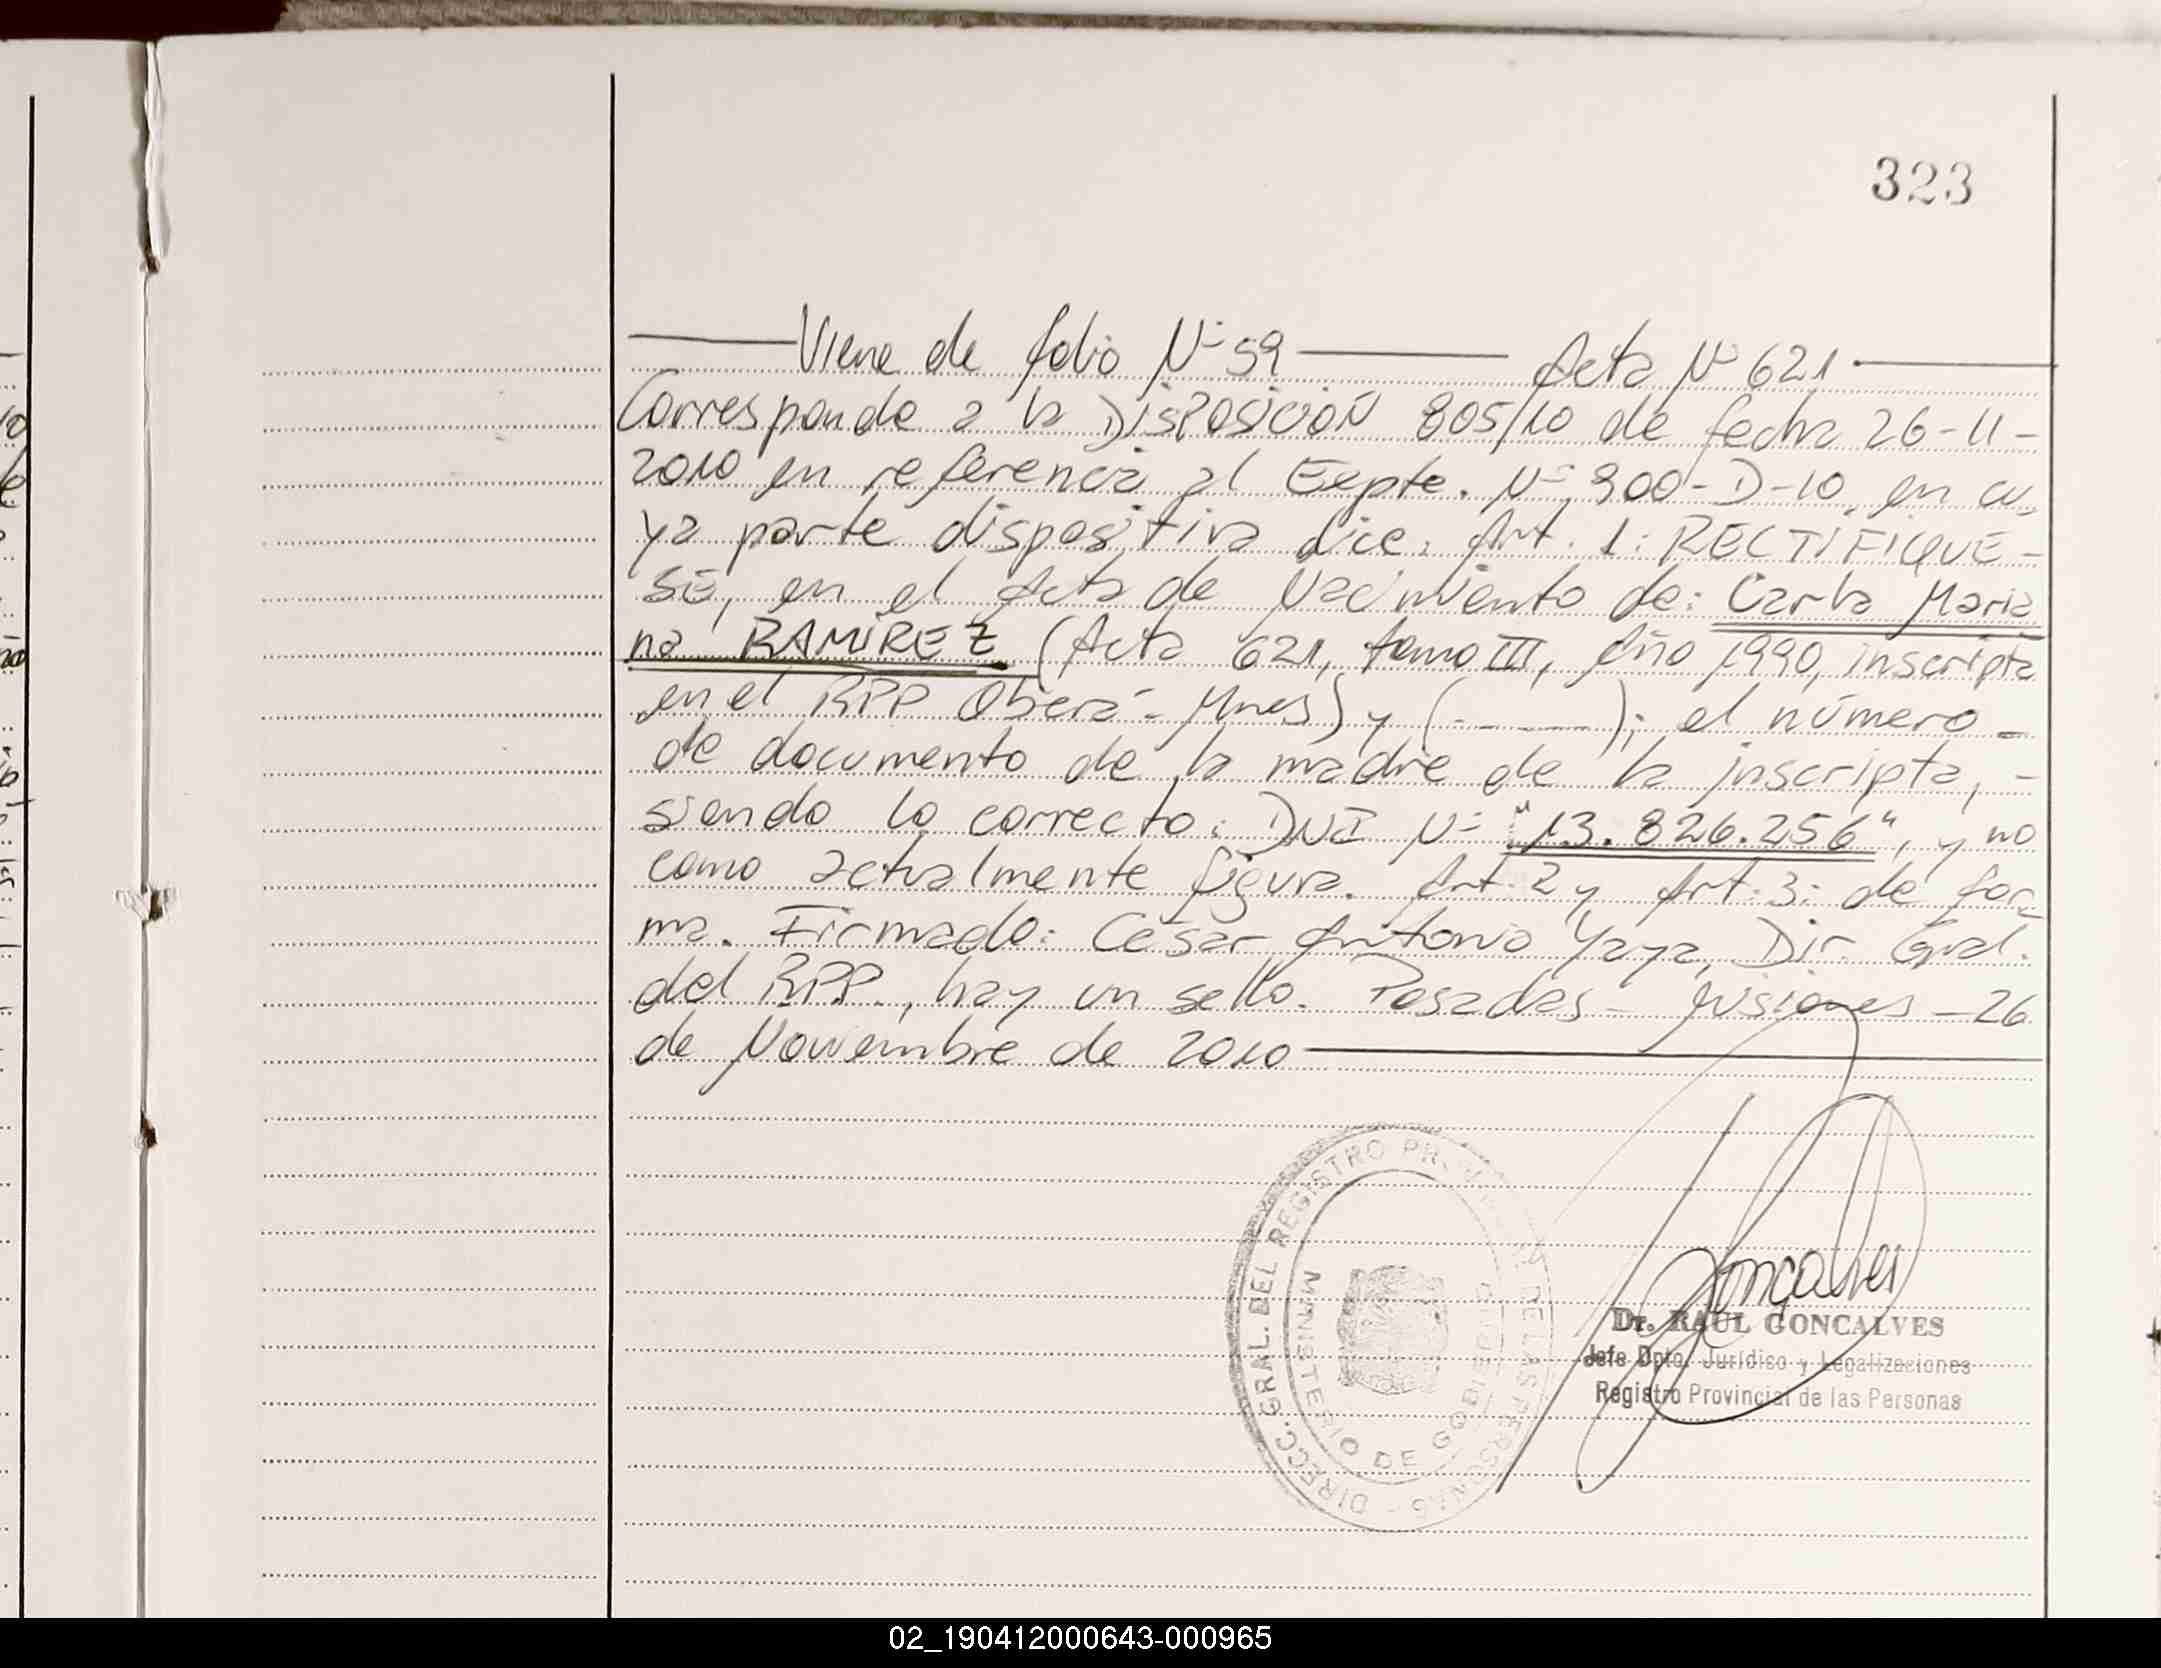 323
Viene de folio Nº 59 Acta Nº 621
Corresponde a la DISPOSICIÓN 805/10 de fecha 26-11-
2010 en referencia al Expte. Nº 900-D-10, en cu
ya parte dispositiva dice: Art. 1: RECTIFIQUE-
SE, en el Acta de Nacimiento de: Carla Maria
na RAMIREZ (Acta 621, tomo III, Año 1990, inscripta
en el RPP Oberá - Mnes) y (- - —); el número -
de documento de la madre de la inscripta, -
siendo lo correcto: DNI Nº "13.826.256", y no
como actualmente figura. Art. 2 y Art. 3: de for
ma. Firmado: César Antonio Yaya, Dir. Gral.
del RPP., hay un sello. Posadas - Misiones - 26
de Noviembre de 2010
DIRECC. GRAL. DEL REGISTRO DE LAS PERSONAS -
MINISTERIO DE GOBIERNO
Gonçalves
Dr. RAUL GONCALVES
Jefe Dpto. Jurídico y Legalizaciones
Registro Provincial de las Personas
02_190412000643-000965